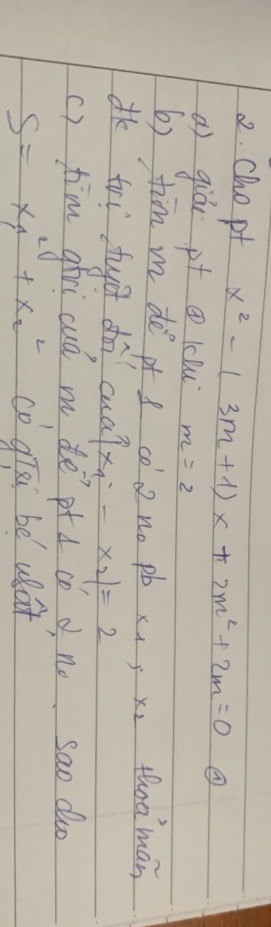 2. Cho pt x² - (3m+1)x + 2m² + 2m = 0 ①
a) giải pt ① khi m = 2
b) tìm m để pt 1 có 2 no pb x1, x2 thoả mãn
đk trị tuyệt đối của |x1 - x2| = 2
c) tìm gtrị của m để pt 1 có 2 no sao cho
S = x1² + x2² có gtrị bé nhất